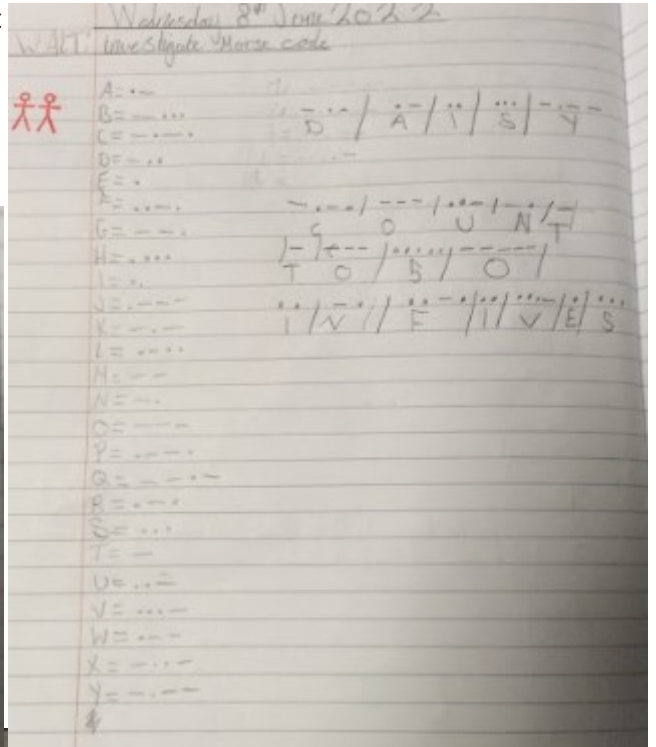 Wednesday 8th June 2022
WALT: investigate Morse code
A= •–
B= –•••
C= –•–•
D= –••
E= •
F= ••–•
G= ––•
H= ••••
I= ••
J= •–––
K= –•–
L= •–••
M= ––
N= –•
O= –––
P= •––•
Q= ––•–
R= •–•
S= •••
T= –
U= ••–
V= •••–
W= •––
X= –••–
Y= –•––
–•• / •– / •• / ••• / –•––
D A I S Y
–•–• / ––– / ••– / –• / –
C O U N T
/ – / ––– / ••••• / ––––– /
T O 5 0
•• / –• // ••–• / •• / •••– / • / •••
I N F I V E S